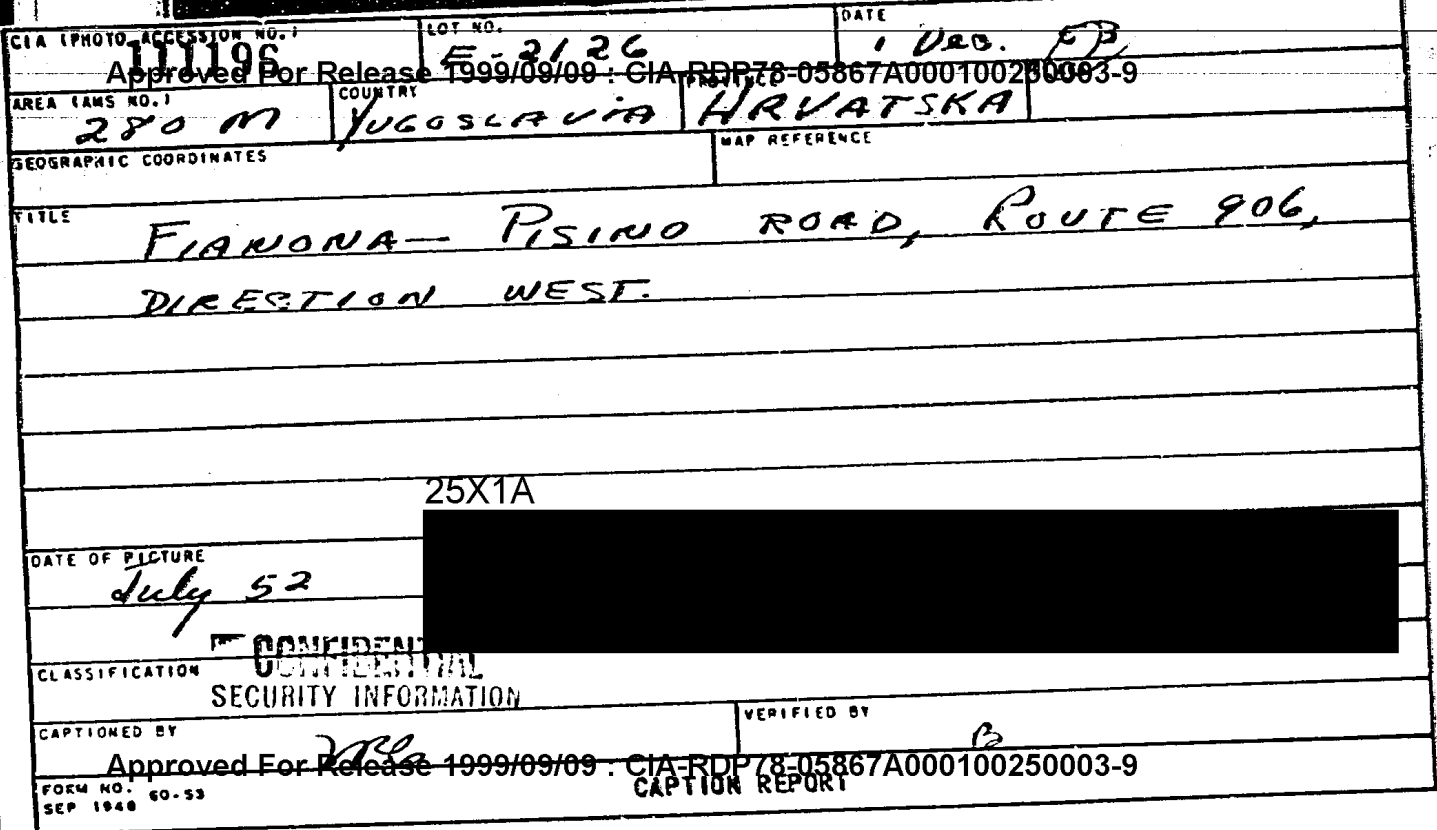 CIA (PHOTO ACCESSION NO.) LOT NO. DATE
111196 E-2126 1 Dec.
Approved For Release 1999/09/09 : CIA-RDP78-05867A000100250003-9
AREA (AMS NO.) COUNTRY PROVINCE
280 M YUGOSLAVIA HRVATSKA
GEOGRAPHIC COORDINATES MAP REFERENCE
TITLE
FIANONA — PISINO ROAD, ROUTE 906,
DIRECTION WEST.
25X1A
DATE OF PICTURE
July 52
CLASSIFICATION CONFIDENTIAL
SECURITY INFORMATION
CAPTIONED BY VERIFIED BY
B
Approved For Release 1999/09/09 : CIA-RDP78-05867A000100250003-9
FORM NO. 60-53 CAPTION REPORT
SEP 1948